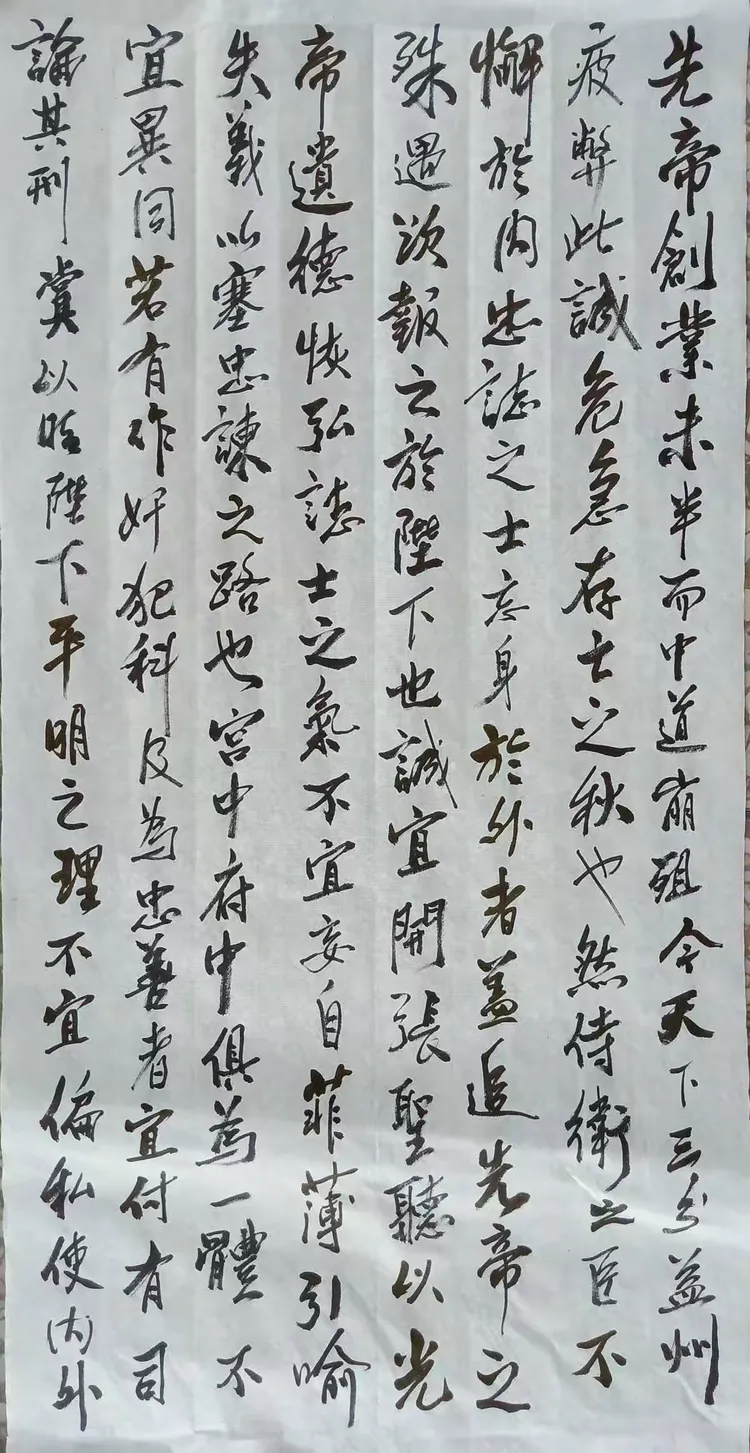 先帝創業未半而中道崩殂今天下三分益州
疲弊此誠危急存亡之秋也然侍衛之臣不
懈於內忠誌之士忘身於外者蓋追先帝之
殊遇欲報之於陛下也誠宜開張聖聽以光
帝遺德恢弘誌士之氣不宜妄自菲薄引喻
失義以塞忠諫之路也宮中府中俱為一體不
宜異同若有作奸犯科及為忠善者宜付有司
論其刑賞以昭陛下平明之理不宜偏私使內外